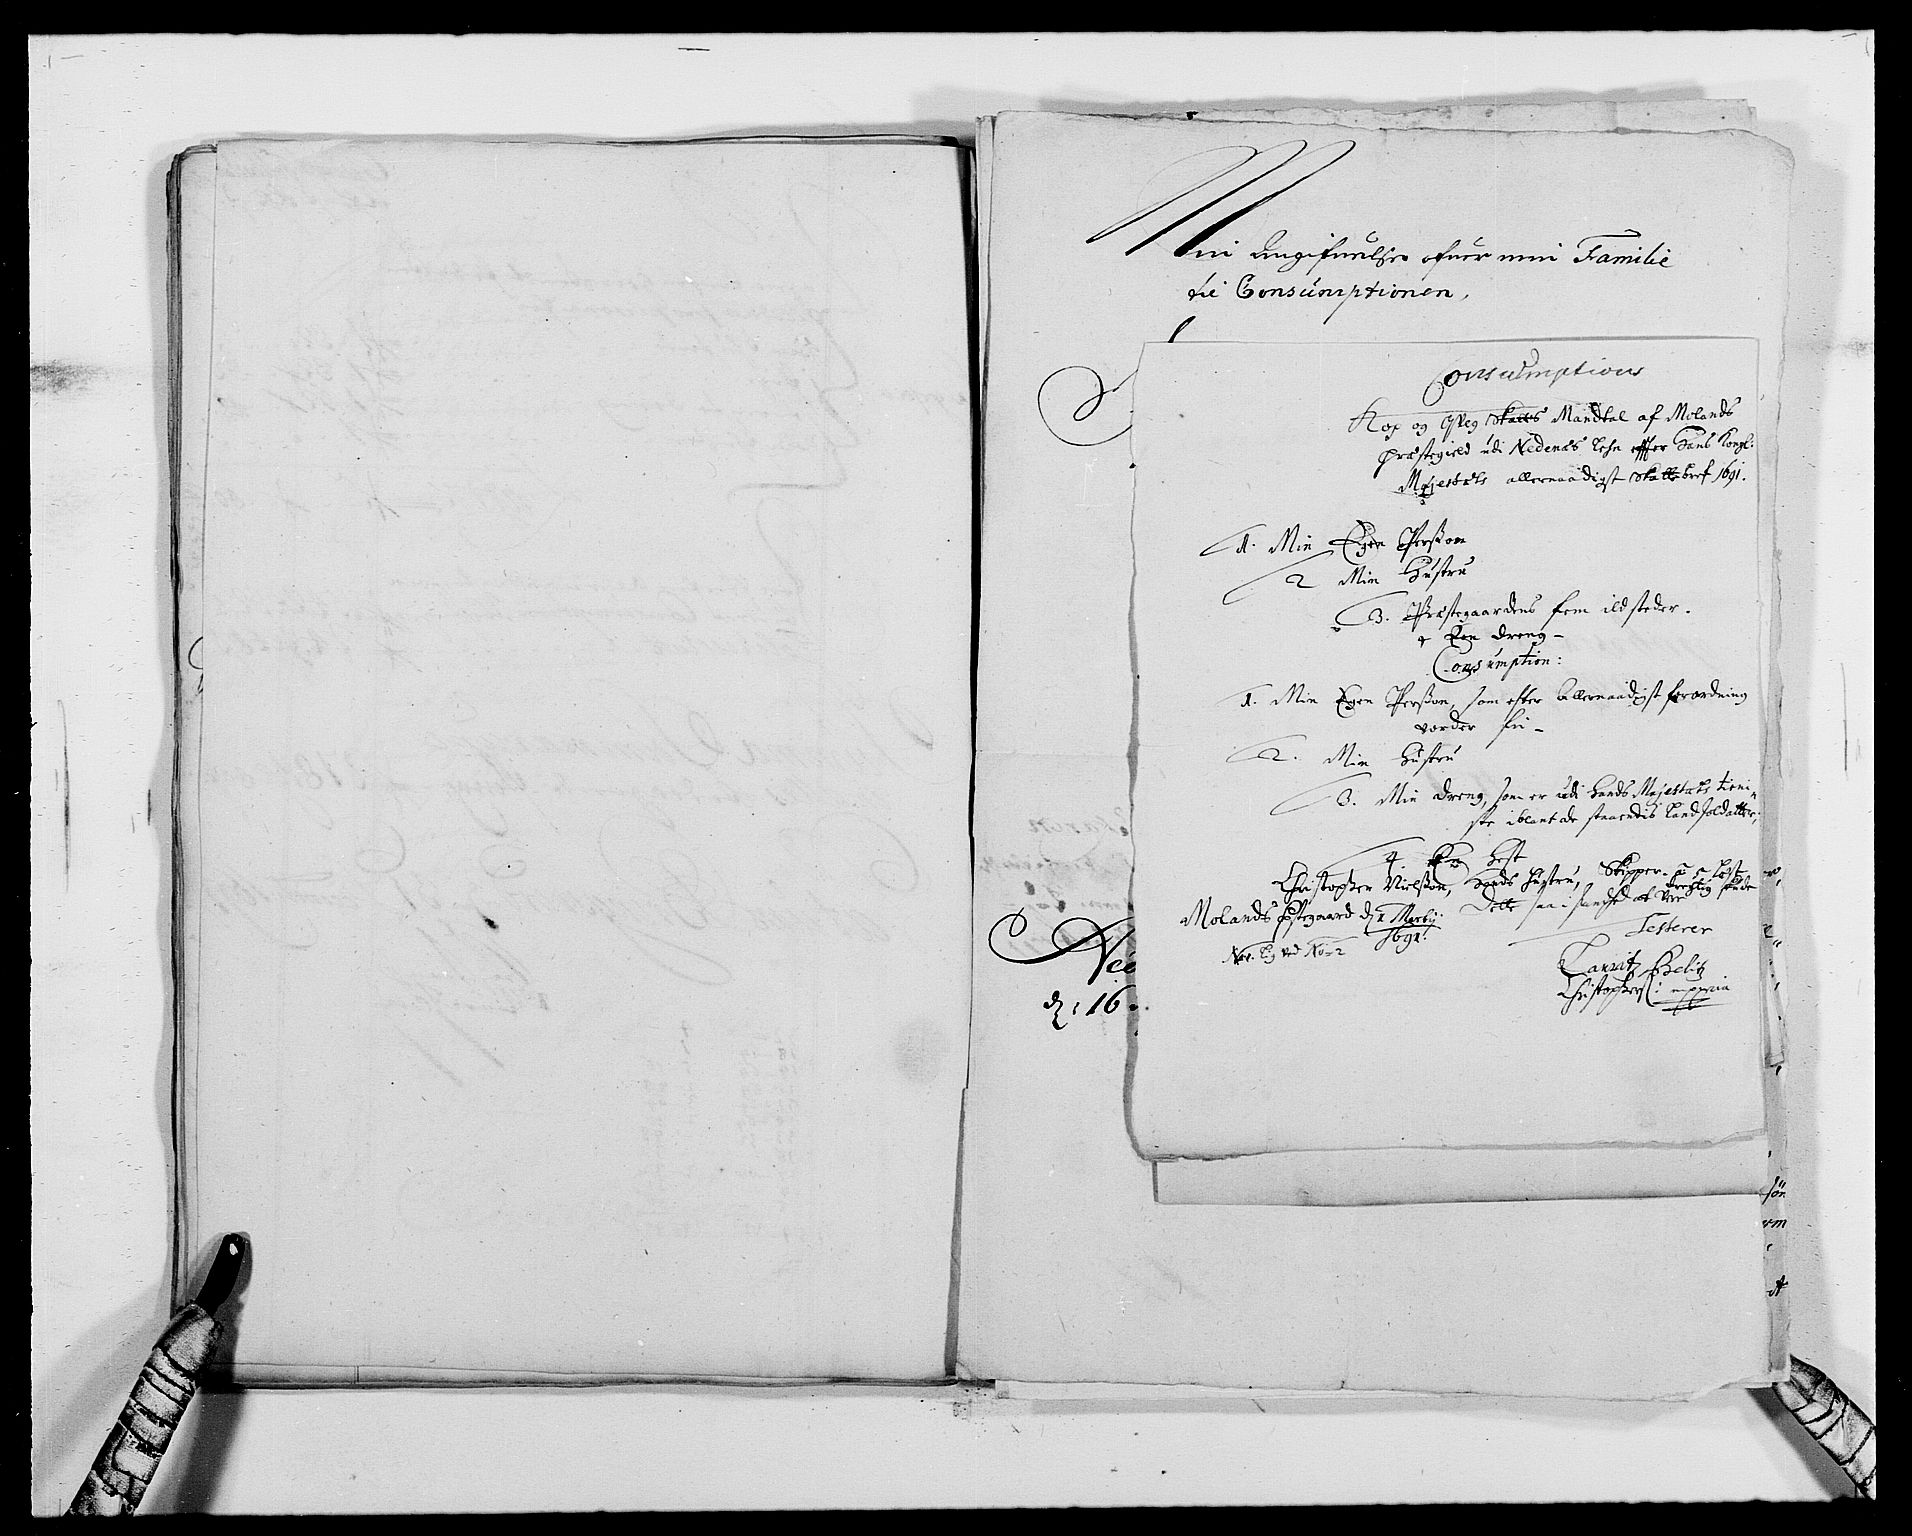 Min Angifuelse ofuer min Familie
til Consumptionen,
Consumptions
Kop og Qveg Skatts Mandtal af Molands
Præstegield udi Nedenæs Lehn effter Hans Kongl:
Majestæts allernaadigst Skattebref 1691.
1. Min Egen Persson
2 Min Hustru
3. Præstegaardens fem ildsteder.
4 Een dreng -
Consumption:
1. Min Egen Persson, som efter allernaadigst forordning
vorder fri -
2. Min Hustru
3. Min dreng, som er udi Hands Majestæts tieni-
ste iblant de staaendis Landsoldatter,
4. En Hest
Christopher Nielsøn, Hands Hustru, Skipper
Dette saa i sandhed at være
Molands Pstegaard d 1 Martij
1691.
Testerer
No: 2
Lauritz
Christophers: mppria
d: 16